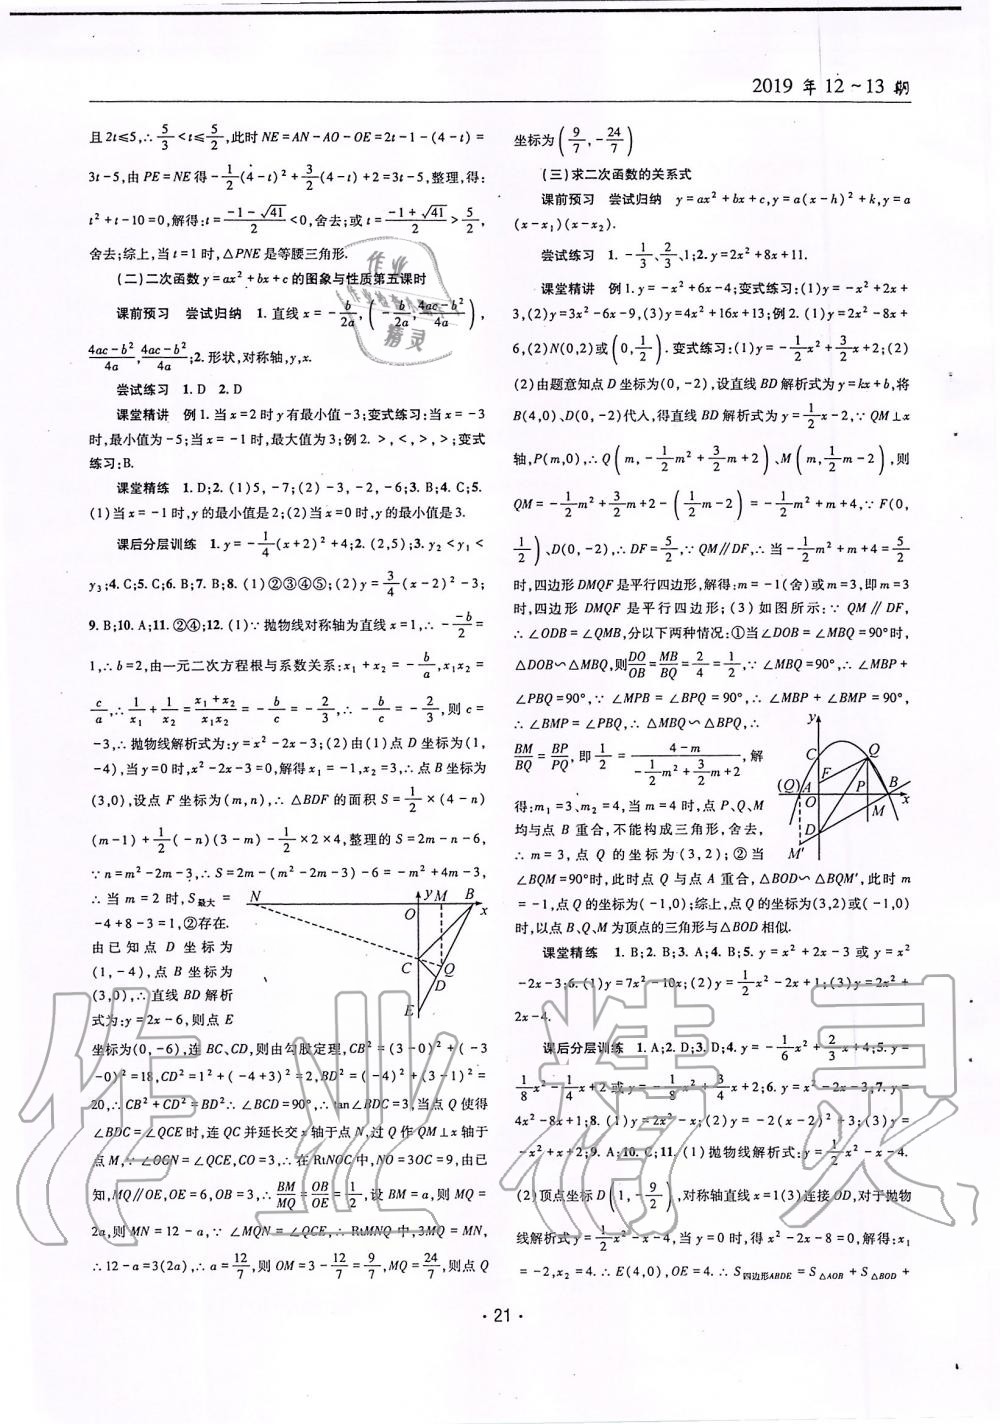 2019 年 12～13 期
且 2t≤5,∴ 5/3 <t≤ 5/2 ,此时 NE=AN-AO-OE=2t-1-(4-t)=
3t-5,由 PE=NE 得 -1/2(4-t)²+3/2(4-t)+2=3t-5,整理,得:
t²+t-10=0,解得:t=(-1-√41)/2<0,舍去;或 t=(-1+√41)/2>5/2,
舍去;综上,当 t=1 时,△PNE 是等腰三角形.
(二)二次函数 y=ax²+bx+c 的图象与性质第五课时
课前预习 尝试归纳 1. 直线 x=-b/2a,(-b/2a,(4ac-b²)/4a),
(4ac-b²)/4a,(4ac-b²)/4a;2. 形状,对称轴,y,x.
尝试练习 1. D 2. D
课堂精讲 例 1. 当 x=2 时 y 有最小值-3;变式练习:当 x=-3
时,最小值为-5;当 x=-1 时,最大值为 3;例 2. >,<,>,>;变式
练习:B.
课堂精练 1. D;2. (1)5,-7;(2)-3,-2,-6;3. B;4. C;5.
(1)当 x=-1 时,y 的最小值是 2;(2)当 x=0 时,y 的最小值是 3.
课后分层训练 1. y=-1/4(x+2)²+4;2. (2,5);3. y₂<y₁<
y₃;4. C;5. C;6. B;7. B;8. (1)②③④⑤;(2)y=3/4(x-2)²-3;
9. B;10. A;11. ②④;12. (1)∵抛物线对称轴为直线 x=1,∴-(-b)/2=
1,∴b=2,由一元二次方程根与系数关系:x₁+x₂=-b/a,x₁x₂=
c/a,∴1/x₁+1/x₂=(x₁+x₂)/x₁x₂=-b/c=-2/3,∴-b/c=-2/3,则 c=
-3,∴抛物线解析式为:y=x²-2x-3;(2)由(1)点 D 坐标为(1,
-4),当 y=0 时,x²-2x-3=0,解得 x₁=-1,x₂=3,∴点 B 坐标为
(3,0),设点 F 坐标为(m,n),∴△BDF 的面积 S=1/2×(4-n)
(m-1)+1/2(-n)(3-m)-1/2×2×4,整理的 S=2m-n-6,
∵n=m²-2m-3,∴S=2m-(m²-2m-3)-6=-m²+4m-3,
∴当 m=2 时,S最大=
-4+8-3=1,②存在.
由已知点 D 坐标为
(1,-4),点 B 坐标为
(3,0),∴直线 BD 解析
式为:y=2x-6,则点 E
N O y M B x C Q D E
坐标为(0,-6),连 BC、CD,则由勾股定理,CB²=(3-0)²+(-3
-0)²=18,CD²=1²+(-4+3)²=2,BD²=(-4)²+(3-1)²=
20,∴CB²+CD²=BD²∴∠BCD=90°,∴tan∠BDC=3,当点 Q 使得
∠BDC=∠QCE 时,连 QC 并延长交 x 轴于点 N,过 Q 作 QM⊥x 轴于
点 M,∵∠OCN=∠QCE,CO=3,∴在 Rt NOC 中,NO=3OC=9,由已
知,MQ∥OE,OE=6,OB=3,∴BM/MQ=OB/OE=1/2,设 BM=a,则 MQ=
2a,则 MN=12-a,∵∠MQN=∠QCE,∴RtMNQ 中,3MQ=MN,
∴12-a=3(2a),∴a=12/7,则 OM=3-12/7=9/7,MQ=24/7,则点 Q
坐标为(9/7,-24/7)
(三)求二次函数的关系式
课前预习 尝试归纳 y=ax²+bx+c,y=a(x-h)²+k,y=a
(x-x₁)(x-x₂).
尝试练习 1. -1/3、2/3、1;2. y=2x²+8x+11.
课堂精讲 例 1. y=-x²+6x-4;变式练习:(1)y=-x²+2x+
3,(2)y=3x²-6x-9,(3)y=4x²+16x+13;例 2. (1)y=2x²-8x+
6,(2)N(0,2)或(0,1/2). 变式练习:(1)y=-1/2x²+3/2x+2;(2)
(2)由题意知点 D 坐标为(0,-2),设直线 BD 解析式为 y=kx+b,将
B(4,0)、D(0,-2)代入,得直线 BD 解析式为 y=1/2x-2,∵QM⊥x
轴,P(m,0),∴Q(m,-1/2m²+3/2m+2)、M(m,1/2m-2),则
QM=-1/2m²+3/2m+2-(1/2m-2)=-1/2m²+m+4,∵F(0,
1/2)、D(0,-2),∴DF=5/2,∵QM∥DF,∴当-1/2m²+m+4=5/2
时,四边形 DMQF 是平行四边形,解得:m=-1(舍)或 m=3,即 m=3
时,四边形 DMQF 是平行四边形;(3)如图所示:∵QM∥DF,
∴∠ODB=∠QMB,分以下两种情况:①当∠DOB=∠MBQ=90°时,
△DOB∽△MBQ,则DO/OB=MB/BQ=2/4=1/2,∵∠MBQ=90°,∴∠MBP+
∠PBQ=90°,∵∠MPB=∠BPQ=90°,∴∠MBP+∠BMP=90°,
∴∠BMP=∠PBQ,∴△MBQ∽△BPQ,∴
BM/BQ=BP/PQ,即 1/2=(4-m)/(-1/2m²+3/2m+2),解
得:m₁=3、m₂=4,当 m=4 时,点 P、Q、M
均与点 B 重合,不能构成三角形,舍去,
∴m=3,点 Q 的坐标为(3,2);②当
y C Q F (Q) A O P B x M D M′
∠BQM=90°时,此时点 Q 与点 A 重合,△BOD∽△BQM′,此时 m
=-1,点 Q 的坐标为(-1,0);综上,点 Q 的坐标为(3,2)或(-1,0)
时,以点 B、Q、M 为顶点的三角形与△BOD 相似.
课堂精练 1. B;2. B;3. A;4. B;5. y=x²+2x-3 或 y=x²
-2x-3;6. (1)y=7x²-10x;(2)y=1/2x²-2x+1;(3)y=2x²+
2x-4.
课后分层训练 1. A;2. D;3. D;4. y=-1/6x²+2/3x+4;5. y=
1/8x²-1/4x+2 或 y=-1/8x²+3/4x+2;6. y=x²-2x-3;7. y=
4x²-8x+1;8. (1)y=2x²-x;(2)y=-2(x-2)²+3;(3)y=
-x²+x+2;9. A;10. C;11. (1)抛物线解析式:y=1/2x²-x-4.
(2)顶点坐标 D(1,-9/2),对称轴直线 x=1(3)连接 OD,对于抛物
线解析式 y=1/2x²-x-4,当 y=0 时,得 x²-2x-8=0,解得:x₁
=-2,x₂=4. ∴E(4,0),OE=4. ∴S四边形ABDE=S△AOB+S△BOD+
· 21 ·
作业精灵